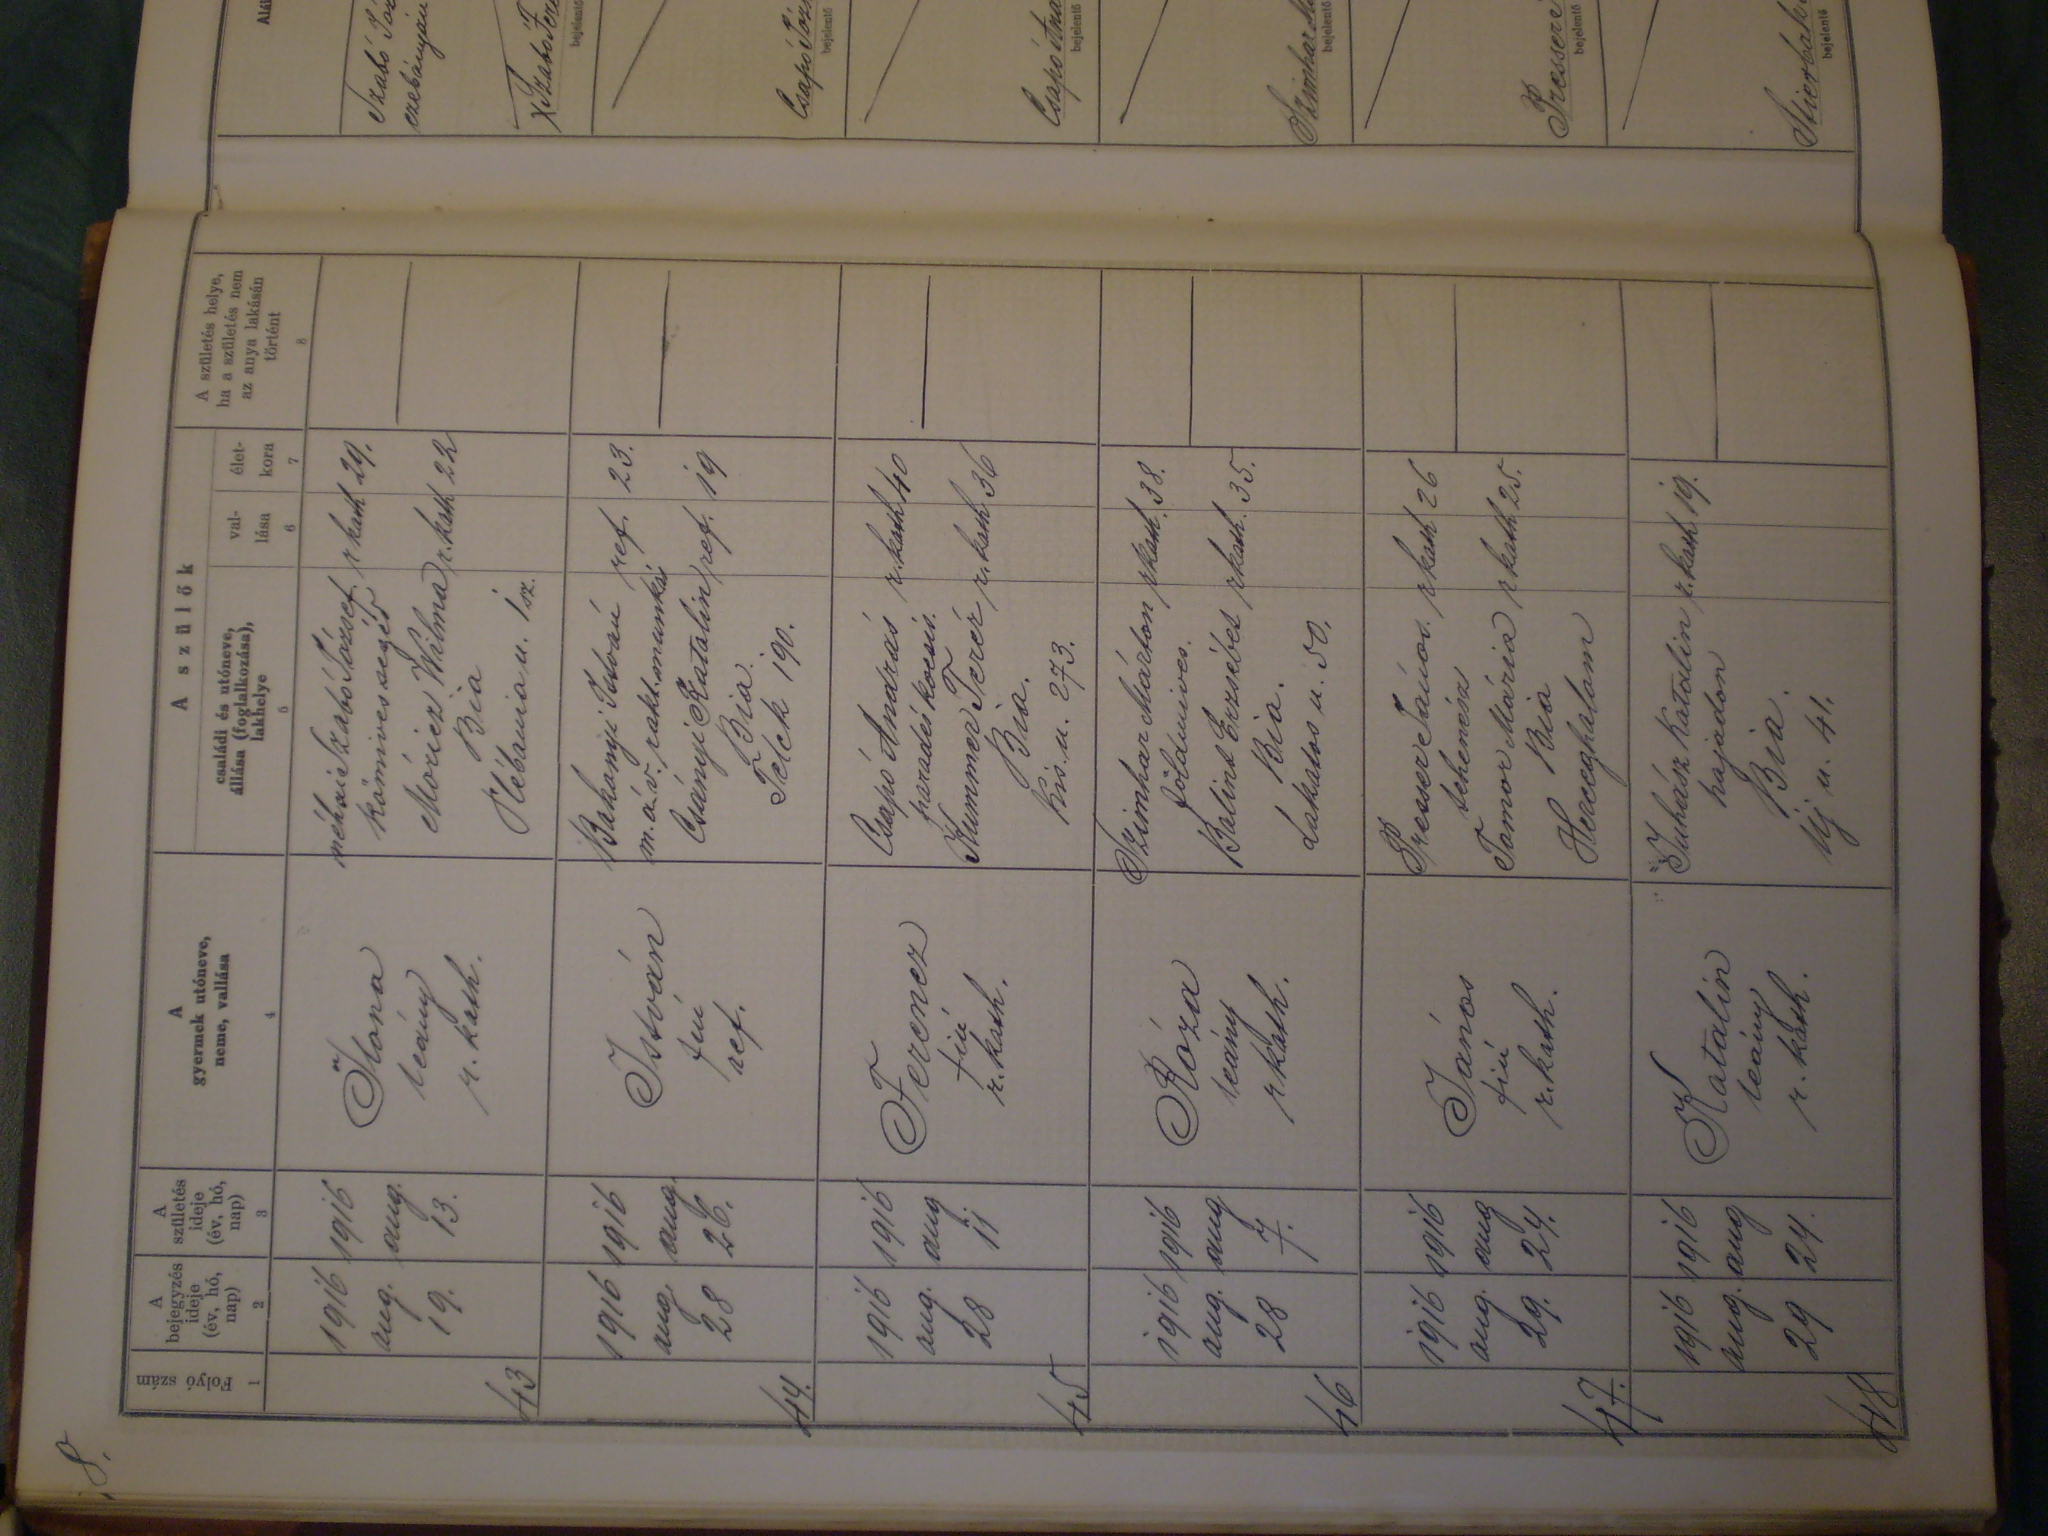 8.
Folyó szám
1
A
bejegyzés
ideje
(év, hó,
nap)
2
A
születés
ideje
(év, hó,
nap)
3
A
gyermek utóneve,
neme, vallása
4
A szülők
családi és utóneve,
állása (foglalkozása),
lakhelye
5
val-
lása
6
élet-
kora
7
A születés helye,
ha a születés nem
az anya lakásán
történt
8
43
1916
aug.
19.
1916
aug.
13.
Ilona
leány
r. kath.
néhai Szabó József r kath 29.
kőmives segéd
Móricz Vilma r. kath 22
Bia
Plébánia u. 1 sz.
44.
1916
aug.
28
1916
aug.
26.
István
fiú
ref.
Bakonyi István ref. 23.
m. á. v. rakt. munkás
Csányi Katalin ref. 19
Bia.
Telek 190.
45
1916
aug.
28
1916
aug
11
Ferencz
fiú
r. kath.
Csapó András r. kath 40
paradés kocsis.
Kummer Teréz r. kath 36
Bia.
Kis. u. 273.
46
1916
aug.
28
1916
aug
7.
Róza
leány
r kath.
Szimhar Márton r kath. 38.
földmives.
Bálint Erzsébet r kath. 35.
Bia.
Lakatos u. 50.
47.
1916
aug.
29.
1916
aug
24.
János
fiú
r. kath.
Presser János. r kath 26
tehenész
Tomor Mária r kath 25.
Bia
Herceghalom
48
1916
aug.
29
1916
aug
24.
Katalin
leány
r. kath.
Juhász Katalin r. kath 19.
hajadon
Bia.
Uj u. 41.
Alá
Szabó Józ
czebányai
X Szabó Fere
bejelentő
Csapó Józs
bejelentő
Csapó Andr
bejelentő
Szimhar Má
bejelentő
Presser
bejelentő
bejelentő